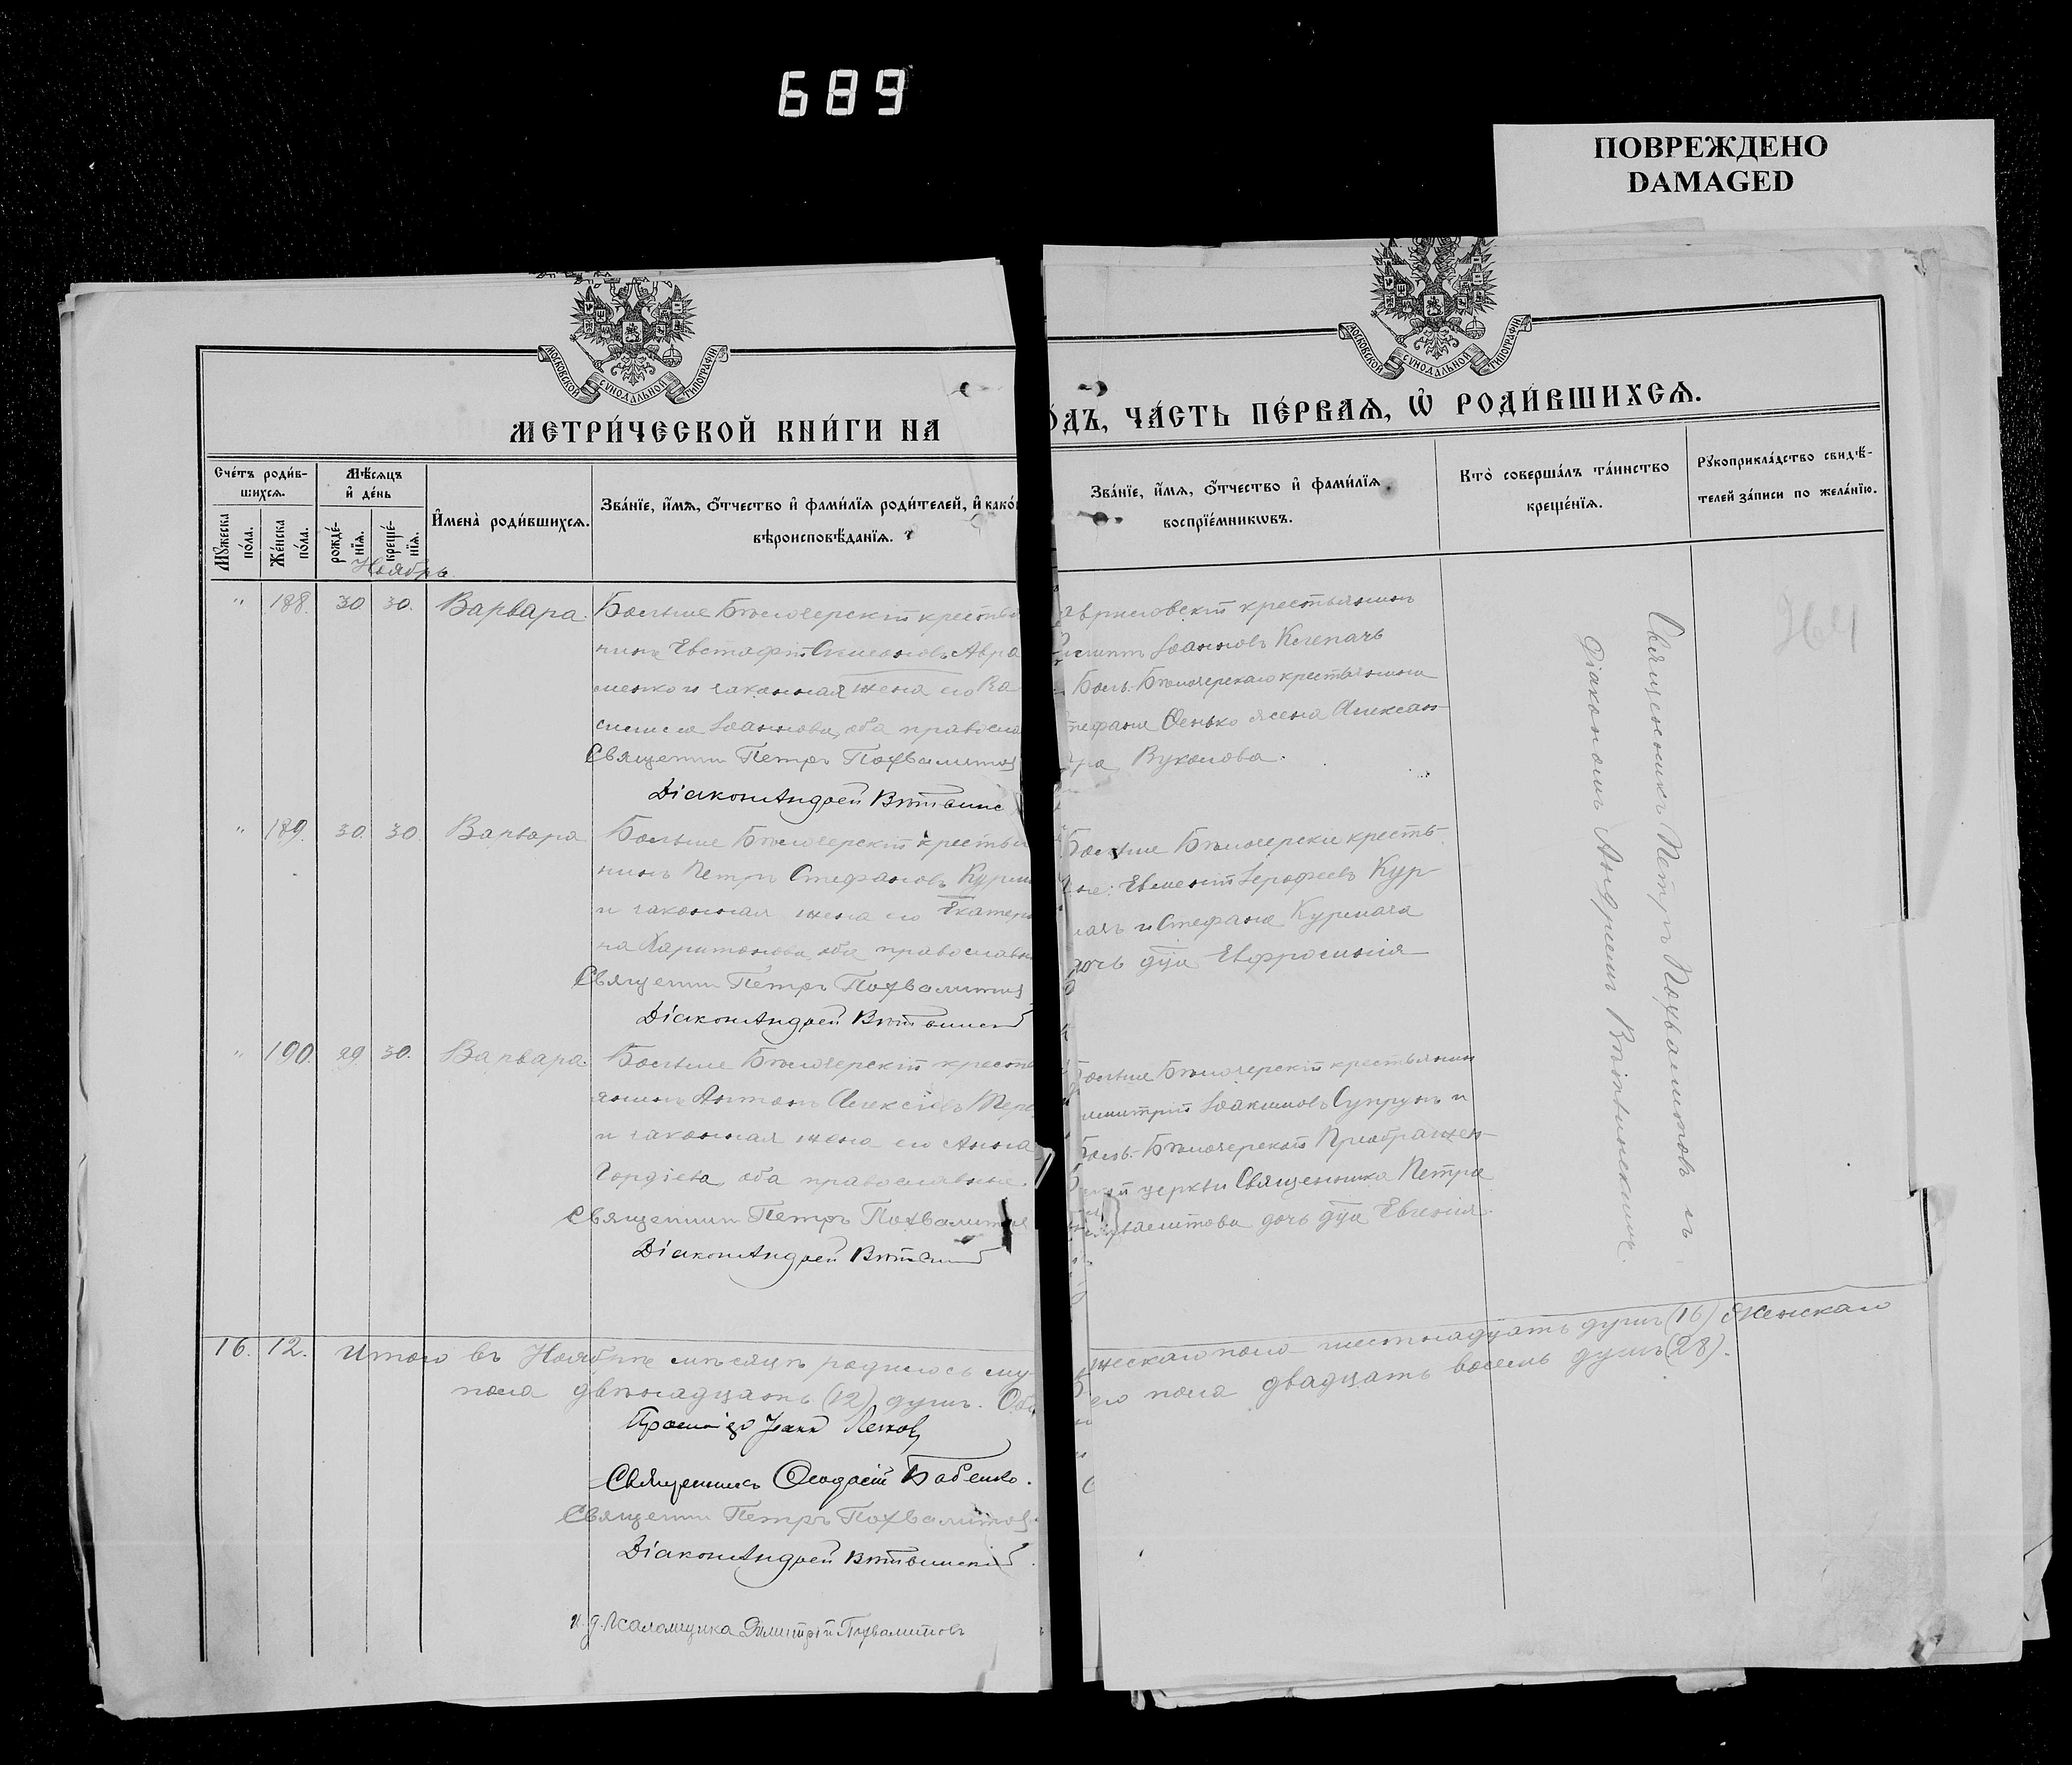 689
ПОВРЕЖДЕНО
DAMAGED
МОСКОВСКОЙ СѴНОДАЛЬНОЙ ТИПОГРАФІИ
МОСКОВСКОЙ СѴНОДАЛЬНОЙ ТИПОГРАФІИ
МЕТРИ́ЧЕСКОЙ КНИ́ГИ НА
О́ДЪ, ЧА́СТЬ ПЕ́РВАѦ, Ѡ҆ РОДИ́ВШИХСѦ.
Сче́тъ роди́в-
шихсѧ.
Мꙋ́жеска по́ла.
Же́нска по́ла.
Мѣ́сѧцъ
и҆ де́нь
рожде́-
нїѧ.
креще́-
нїѧ.
И҆мена̀ роди́вшихсѧ.
Зва́нїе, и҆́мѧ, ѻ҆́тчество и҆ фами́лїѧ роди́телей, и҆ како́
вѣроисповѣ́данїѧ.
Зва́нїе, и҆́мѧ, ѻ҆́тчество и҆ фами́лїѧ
воспрїе́мникѡвъ.
Кто̀ соверша́лъ та́инство
креще́нїѧ.
Рꙋкоприкла́дство свидѣ́-
телей за́писи по жела́нїю.
Ноябрь
" 188. 30. 30. Варвара. Больше Бѣлозерскій крестья
нинъ Евстафій Симеоновъ Авра
менко и законная жена его Ва
силиса Іоаннова, оба правосла
Священник Петръ Похвалитов
Діаконъ Андрей Витвинс
авриловскій крестьянинъ
Іоанновъ Клепачъ
Боль. Бѣлозерскаго крестьянина
тефана Сенько жена Алексан-
ра Вуколова.
" 189. 30. 30. Варвара Больше Бѣлозерскій крестья
нинъ Петръ Стефановъ Курм
и законная жена его Екатери
на Харитонова, оба православн
Священник Петръ Похвалитов
Діаконъ Андрей Витвинский
Больше Бѣлозерски кресть-
не: Евменій Іерофеевъ Кур-
мачъ и Стефана Курмача
дочь дѣв. Евфросинія
" 190. 29. 30. Варвара. Больше Бѣлозерскій кресть
янинъ Антонъ Алексіевъ Тере
и законная жена его Анна
Гордіева, оба православные.
Священник Петръ Похвалитов
Діаконъ Андрей Витвинский
Больше Бѣлозерскій крестьянин
имитрій Іоакимовъ Супрунъ и
Боль.-Бѣлозерской Преображен-
ской церкви Священника Петра
хвалитова дочь дѣв. Евгенія.
Священникъ Петръ Похвалитовъ съ
Діакономъ Андреемъ Витвинскимъ.
16. 12. Итого въ Ноябрѣ мѣсяцѣ родилось му
жескаго пола шестнадцать душъ (16) Женскаго
пола двѣнадцать (12) душъ. Об
его пола двадцать восемь душъ (28).
Священникъ Ѳеодосій Бабенко.
Священник Петръ Похвалитов
Діаконъ Андрей Витвинский
И. д. Псаломщика Димитрій Похвалитовъ